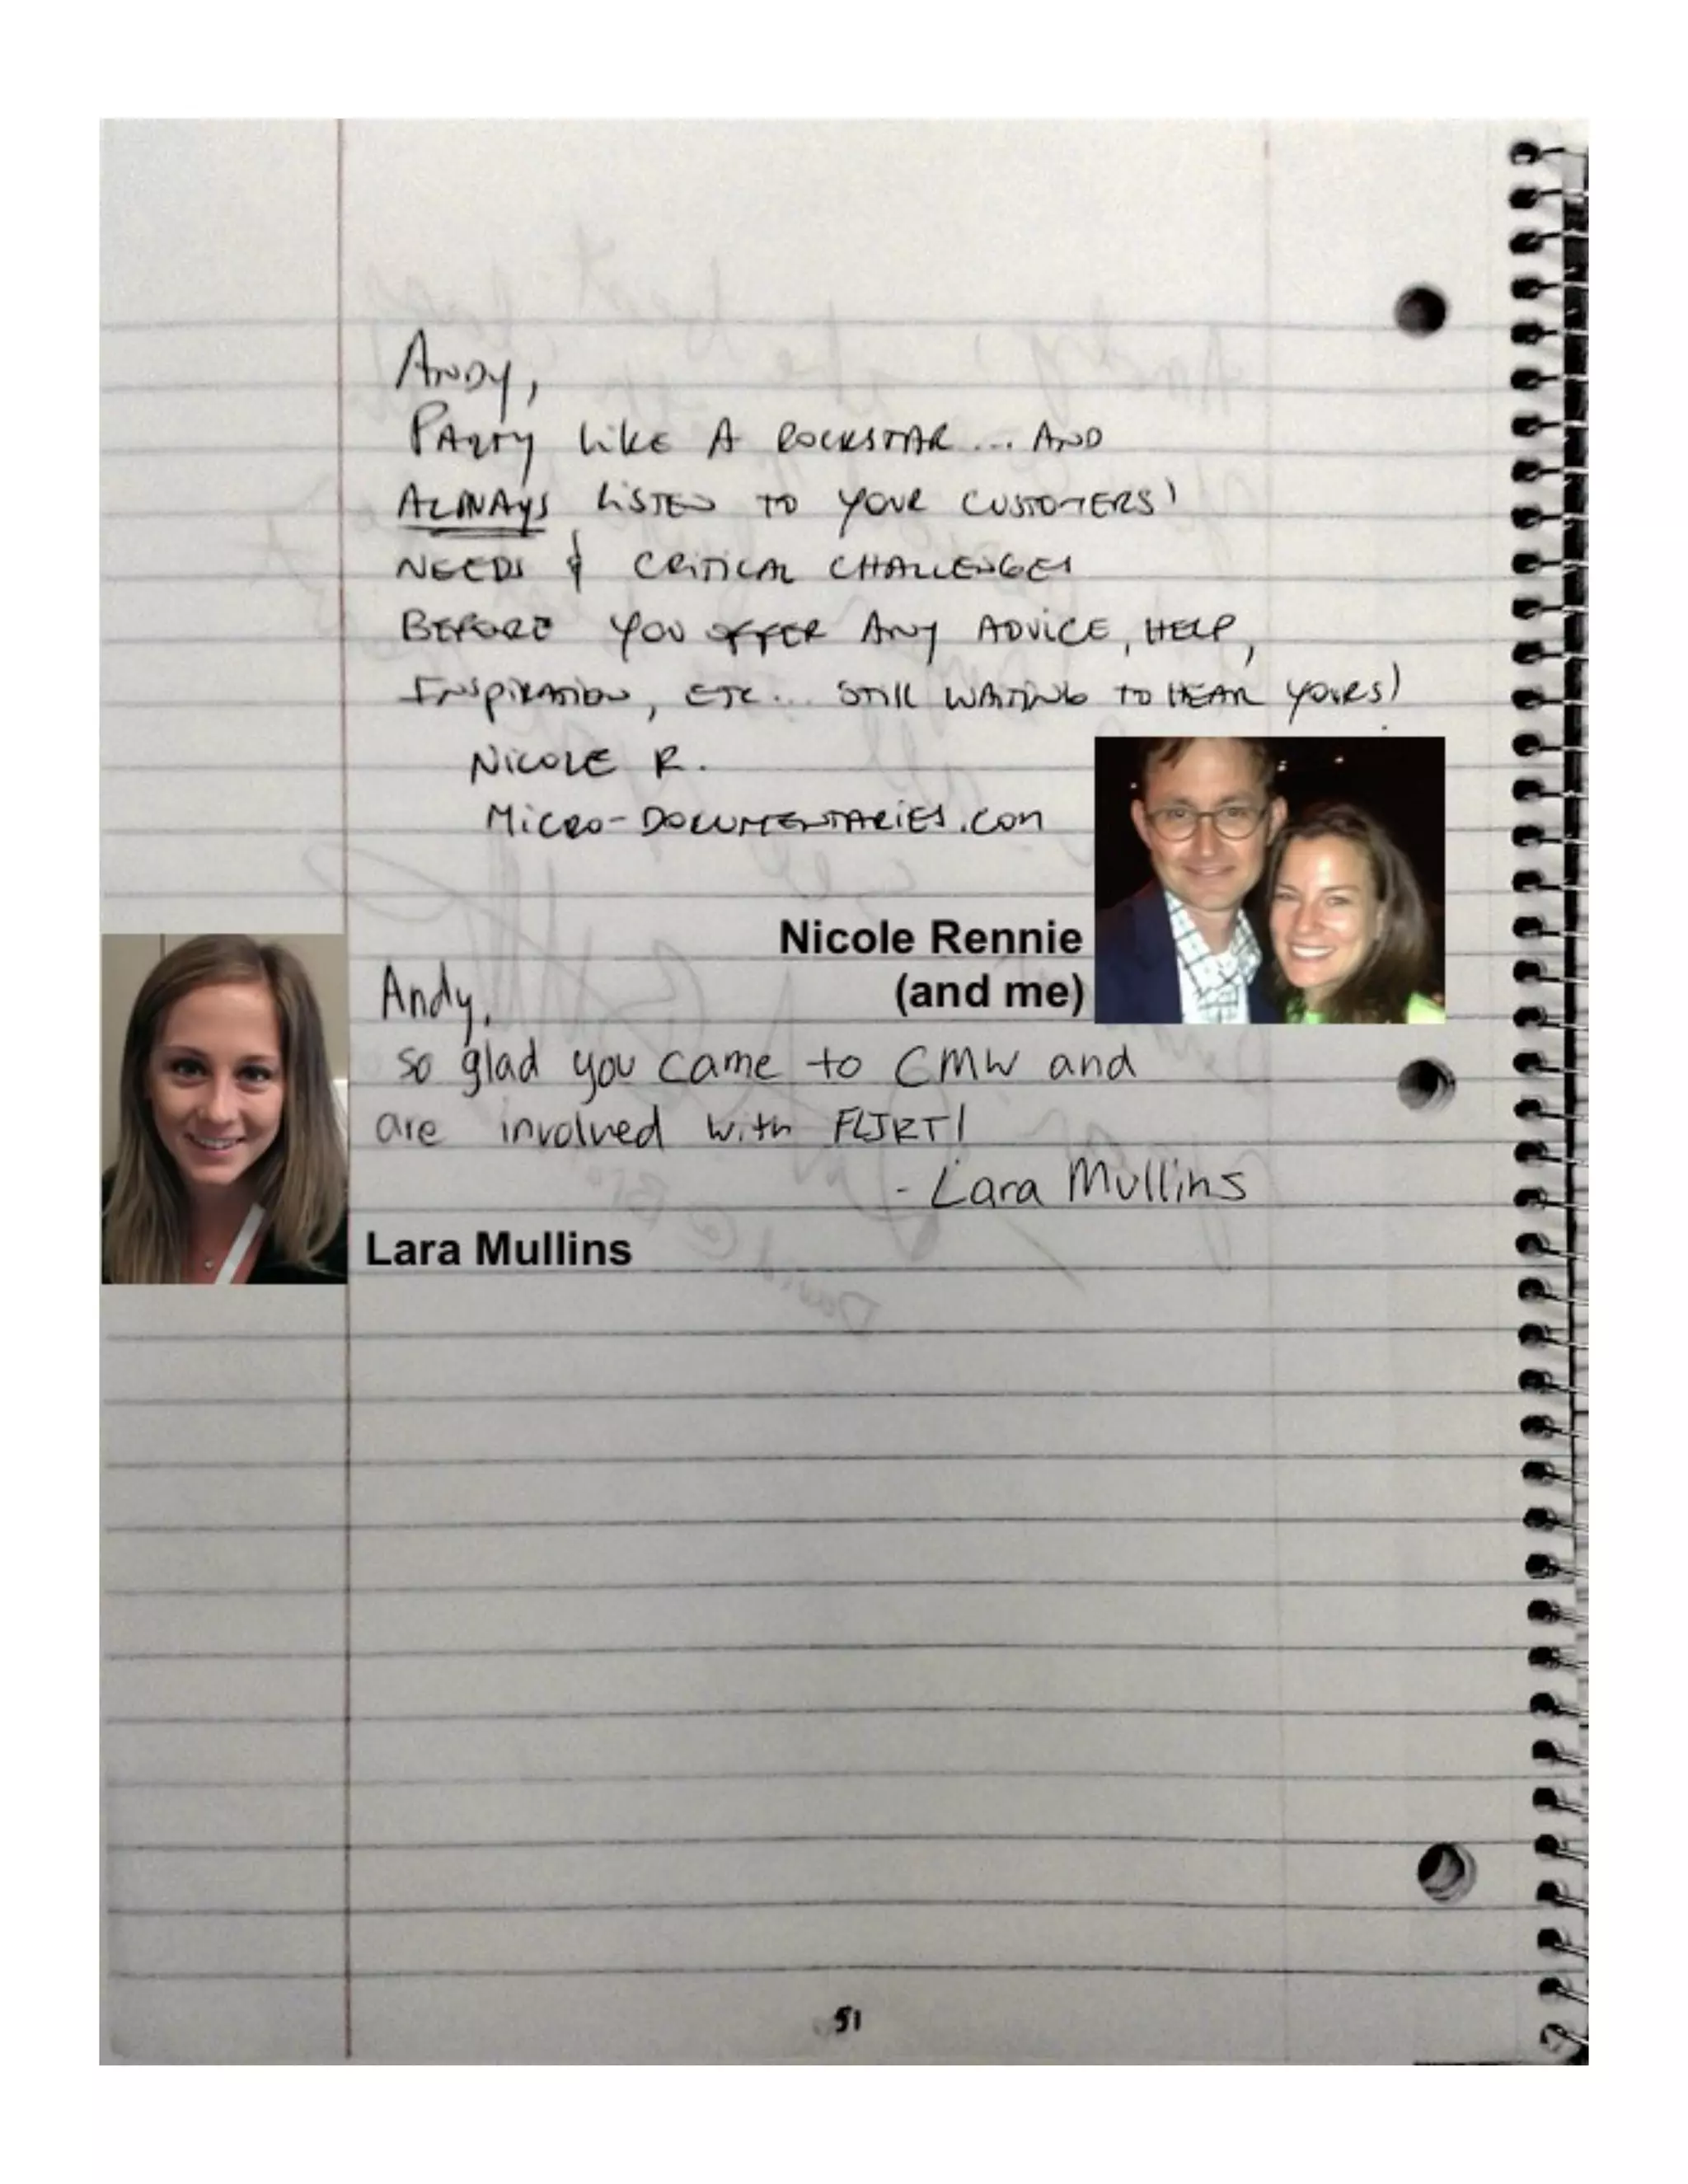 ANDY,
PARTY LIKE A ROCKSTAR... AND
ALWAYS LISTEN TO YOUR CUSTOMERS'
NEEDS & CRITICAL CHALLENGES
BEFORE YOU OFFER ANY ADVICE, HELP,
INSPIRATION, ETC... STILL WAITING TO HEAR YOURS!
NICOLE R.
MICRO-DOCUMENTARIES.COM
Nicole Rennie
(and me)
Andy,
so glad you came to CMW and
are involved with FLIRT!
- Lara Mullins
Lara Mullins
51